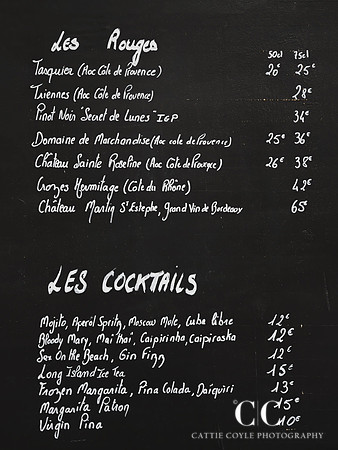 Les Rouges
50cl 75cl
Tasquier (Aoc Côte de Provence) 20€ 25€
Triennes (Aoc Côte de Provence) 28€
Pinot Noir "Secret de Lunes" IGP 34€
Domaine de Marchandise (Aoc cote de Provence) 25€ 36€
Château Sainte Roseline (Aoc Côte de Provence) 26€ 38€
Crozes Hermitage (Côte du Rhône) 42€
Château Martin St Estephe, Grand Vin de Bordeaux 65€
LES COCKTAILS
Mojito, Aperol Spritz, Moscow Mule, Cuba Libre 12€
Bloody Mary, Mai Thaï, Caïpirinha, Caïpiroska 12€
Sex On the Beach, Gin Fizz 12€
Long Island Ice Tea 15€
Frozen Margarita, Pina Colada, Daïquiri 13€
Margarita Patron 15€
Virgin Pina 10€
CC
CATTIE COYLE PHOTOGRAPHY